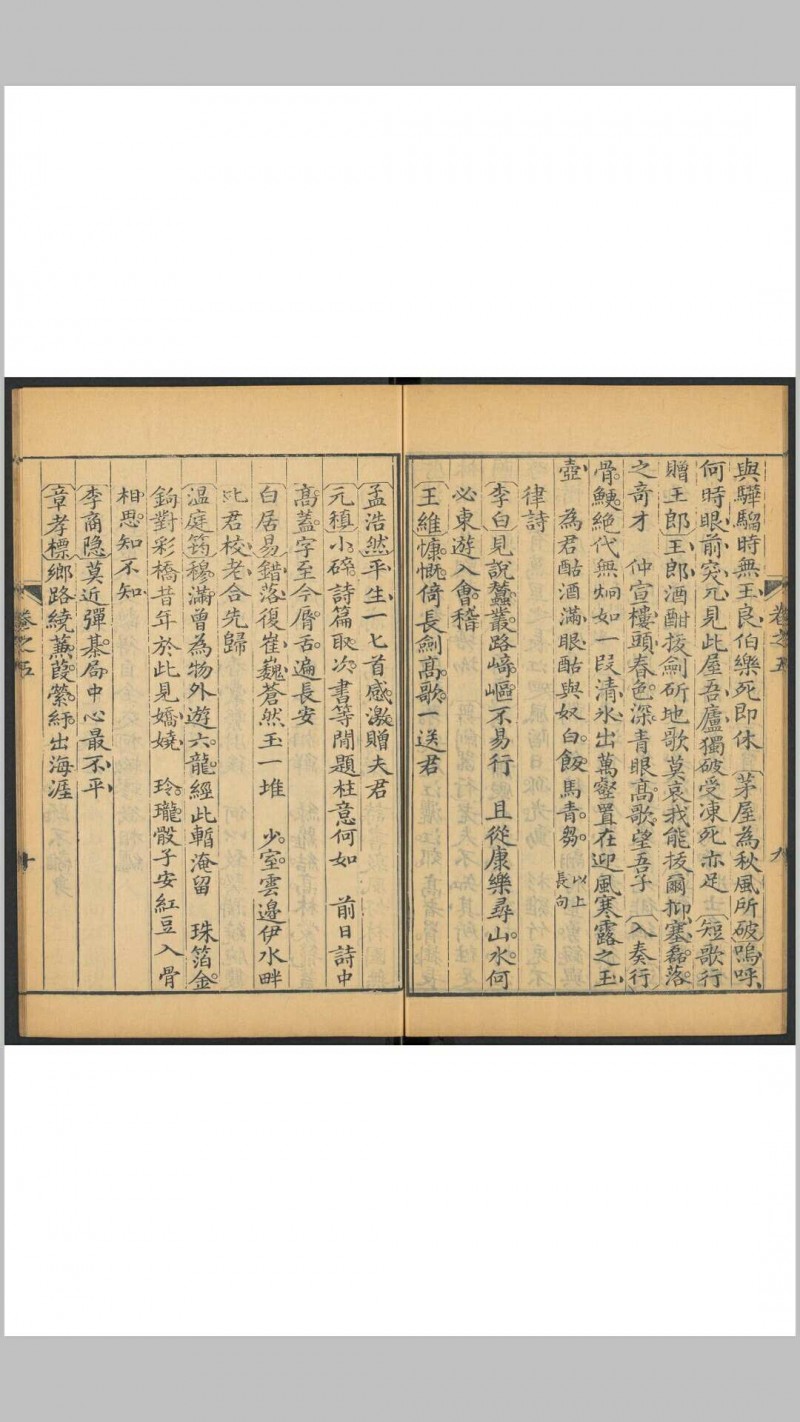 與驊騮時無王良伯樂死即休 茅屋為秋風所破嗚呼
何時眼前突兀見此屋吾廬獨破受凍死亦足 短歌行
贈王郎王郎酒酣拔劍斫地歌莫哀我能拔爾抑塞磊落
之奇才 仲宣樓頭春色深青眼髙歌望吾子 入奏行
骨鯁絕代無炯如一段清氷出萬壑置在迎風寒露之玉
壺 為君酤酒滿眼酤與奴白飯馬青芻 以上長句
律詩
李白見說蠶叢路﨑嶇不易行 且從康樂尋山水何
必東遊入會稽
王維慷慨倚長劍髙歌一送君
卷之五
九
孟浩然平生一匕首感激贈夫君
元稹小碎詩篇取次書等閒題柱意何如 前日詩中
髙蓋字至今脣舌遍長安
白居易錯落復崔巍蒼然玉一堆 少室雲邊伊水畔
比君校老合先歸
温庭筠穆滿曾為物外遊六龍經此暫淹留 珠箔金
鉤對彩橋昔年於此見嬌嬈 玲瓏骰子安紅豆入骨
相思知不知
李商隐莫近彈棊局中心最不平
章孝標鄉路繞蒹葭縈紆出海涯
卷之五
十